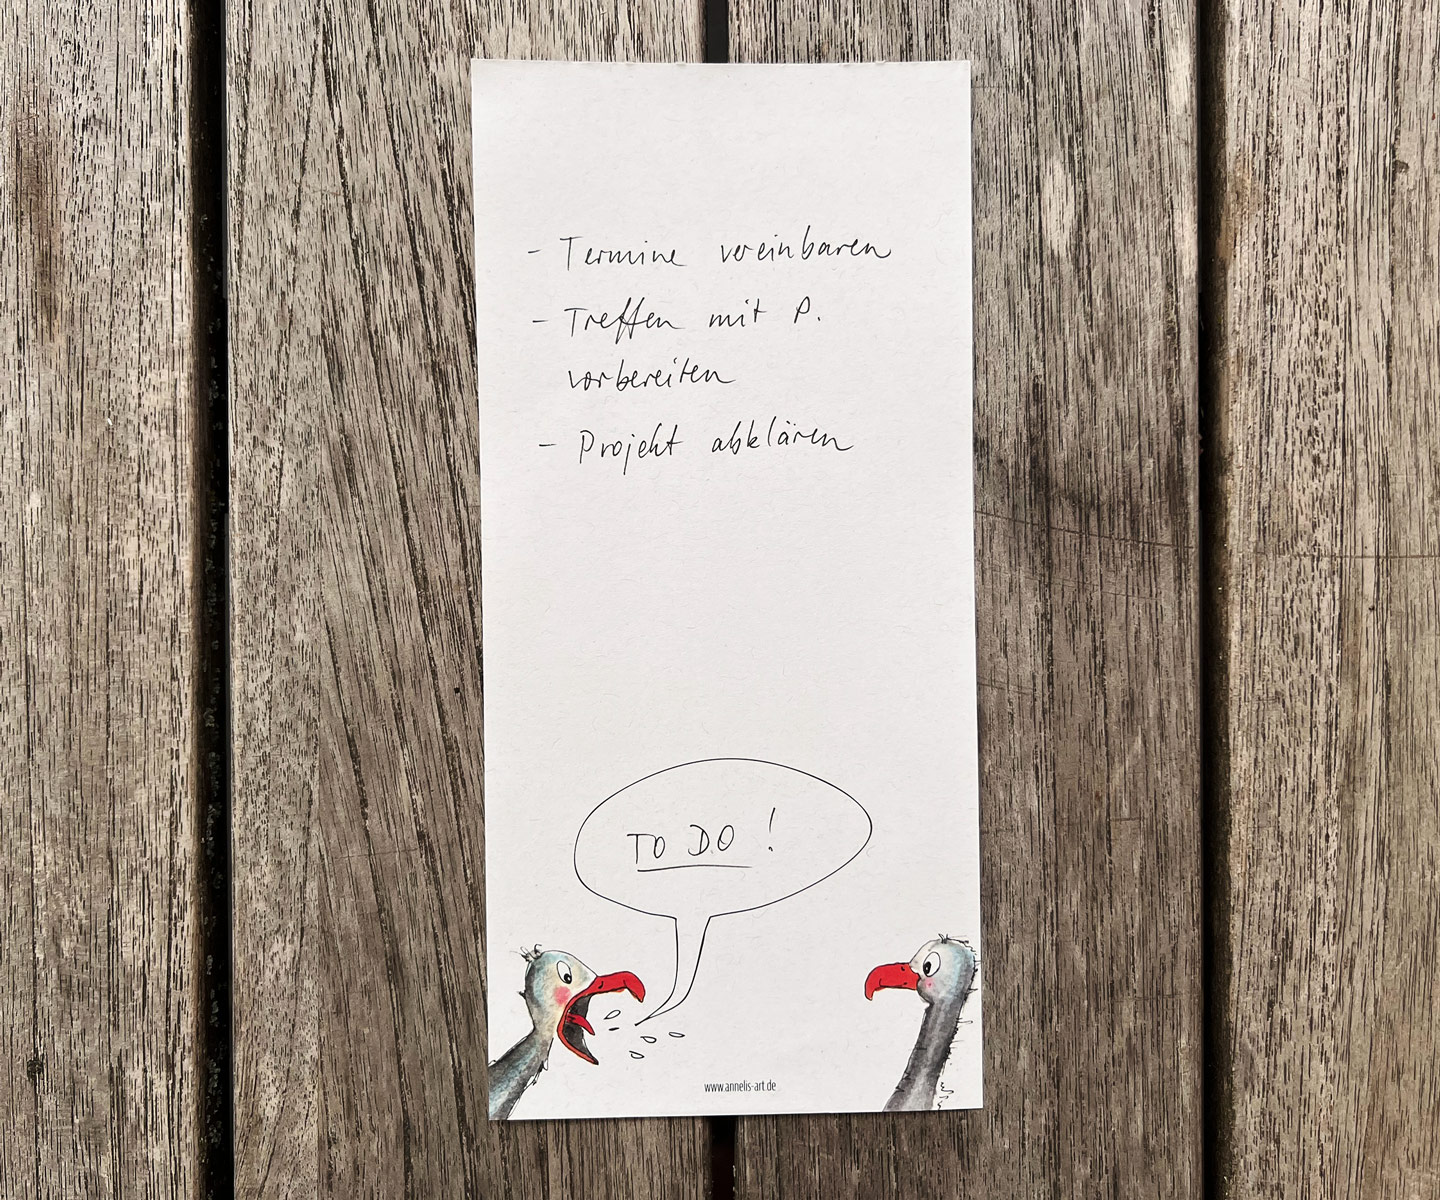 - Termine vereinbaren
- Treffen mit P.
vorbereiten
- Projekt abklären
TO DO !
www.annelis-art.de